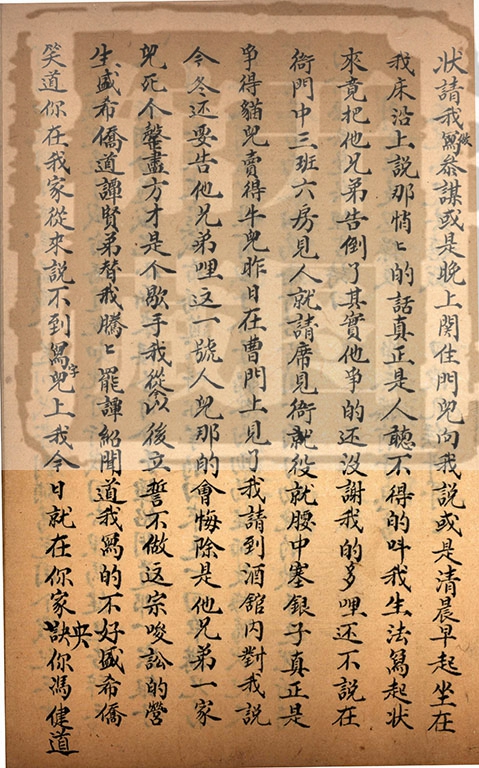 狀請我寫做叅謀或是晚上関住門兒向我說或是清晨早起坐在
我床沿上說那悄〻的話真正是人聽不得的呌我生法寫起狀
來竟把他兄弟告倒了其實他爭的还没謝我的多哩还不說在
衙門中三班六房見人就請席見衙就役就腰中塞銀子真正是
爭得貓兒賣得牛兒昨日在曹門上見了我請到酒舘內對我說
今冬还要告他兄弟哩这一號人兒那的會悔除是他兄弟一家
兒死个罄盡方才是个歇手我從以後立誓不做这宗唆訟的營
生盛希僑道譚賢弟替我騰〻罷譚紹聞道我寫的不好盛希僑
笑道你在我家從來說不到寫字兒上我今日就在你家央你馮健道